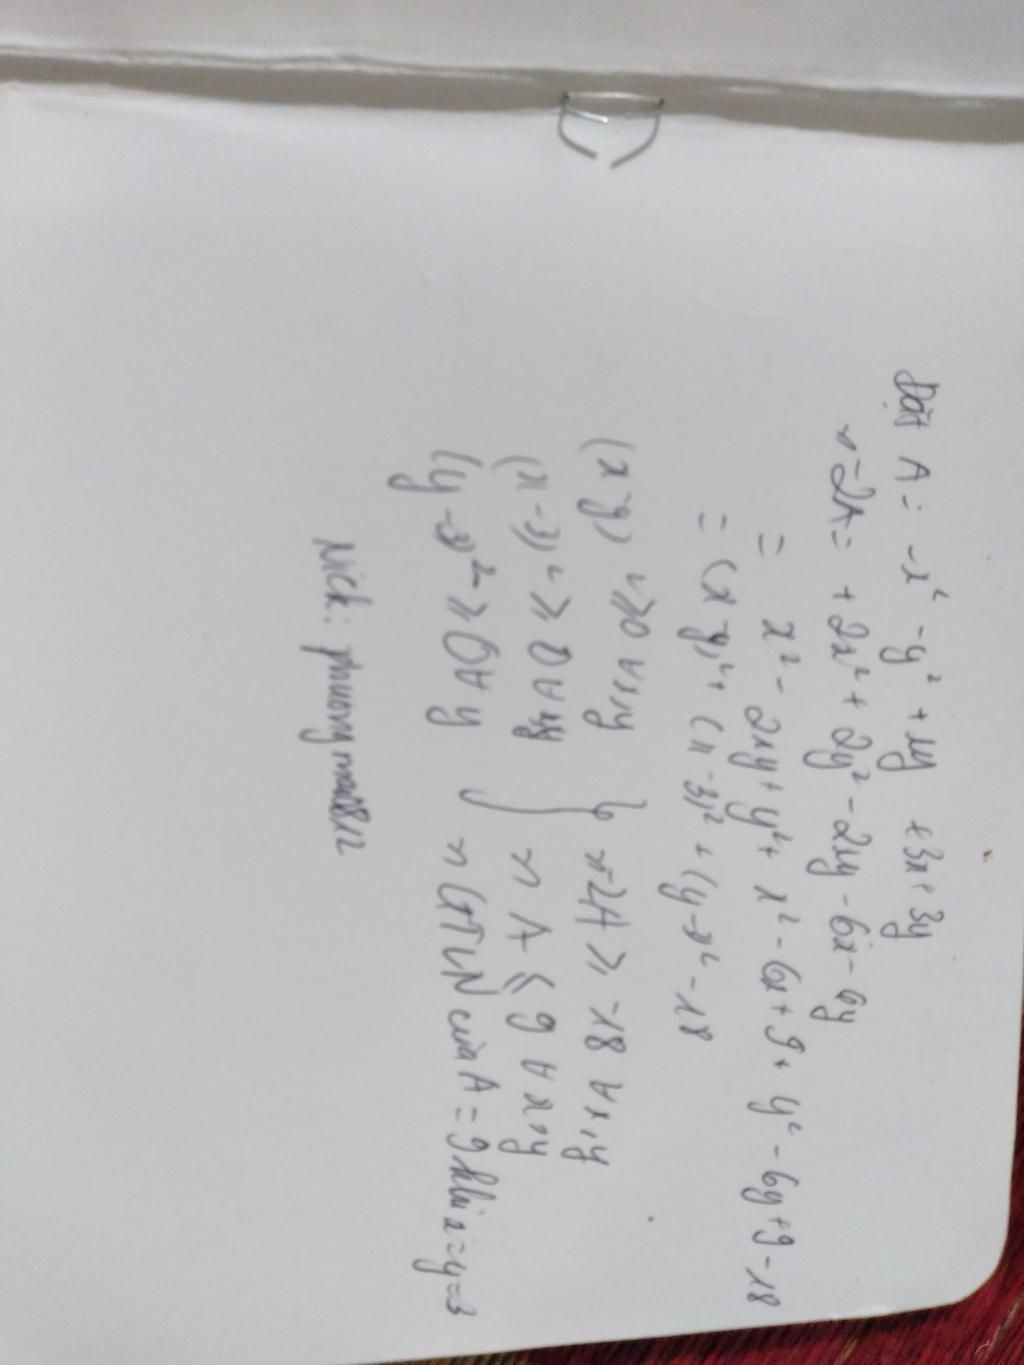 Đặt A = -x² - y² + xy + 3x + 3y
~ -2A = +2x² + 2y² - 2xy - 6x - 6y
= x² - 2xy + y² + x² - 6x + 9 + y² - 6y + 9 - 18
= (x-y)² + (x-3)² + (y-3)² - 18
(x-y)² ≥ 0 ∀ x,y } ~ -2A ≥ -18 ∀ x,y
(x-3)² ≥ 0 ∀ ~ A ≤ 9 ∀ x,y
(y-3)² ≥ 0 ∀ y ~ GTLN của A = 9 khi x=y=3
Nick: phuongmai8812